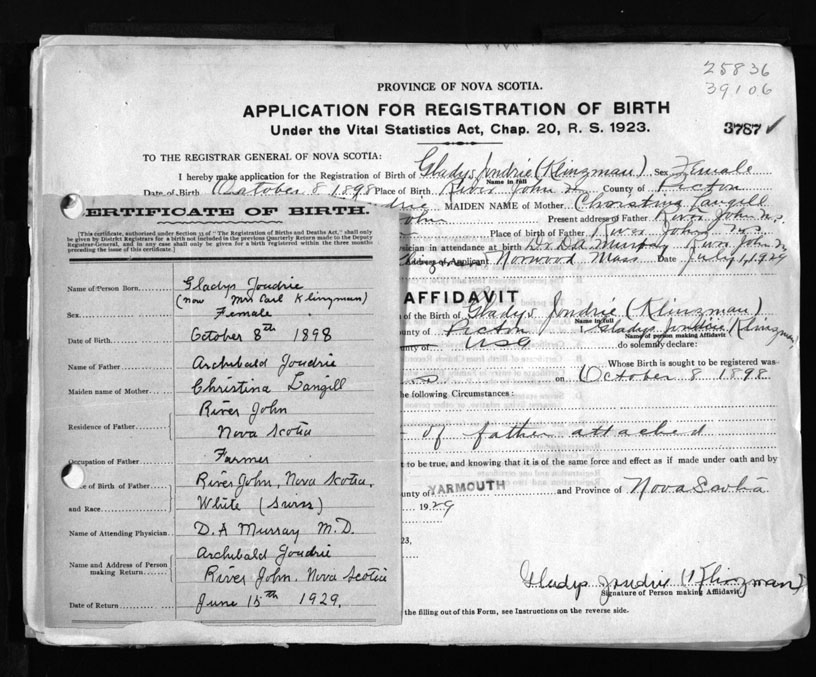 25836
39106
PROVINCE OF NOVA SCOTIA.
APPLICATION FOR REGISTRATION OF BIRTH
Under the Vital Statistics Act, Chap. 20, R. S. 1923.
3787 ✓
TO THE REGISTRAR GENERAL OF NOVA SCOTIA:
I hereby make application for the Registration of Birth of Gladys Joudrie (Klinzman) Sex Female
Name in full
Date of Birth October 8 1898 Place of Birth River John County of Picton
MAIDEN NAME of Mother Christina Langill
Present address of Father River John N.S.
Place of birth of Father River John N.S.
sician in attendance at birth Dr. D A Murray River John
Address of Applicant Norwood Mass Date July 1, 1929
CERTIFICATE OF BIRTH.
[This certificate, authorized under Section 11 of "The Registration of Births and Deaths Act," shall only
be given by District Registrars for a birth not included in the previous Quarterly Return made to the Deputy
Registrar-General, and in any case shall only be given for a birth registered within the three months
preceding the issue of this certificate.]
Name of Person Born, Gladys Joudrie
(now Mrs Carl Klinzman)
Sex Female
Date of Birth October 8th 1898
Name of Father Archibald Joudrie
Maiden name of Mother Christina Langill
Residence of Father River John
Nova Scotia
Occupation of Father Farmer
ce of Birth of Father River John, Nova Scotia.
and Race White (Swiss)
Name of Attending Physician D. A Murray M.D.
Name and Address of Person making Return Archibald Joudrie
River John, Nova Scotia
Date of Return June 15th 1929.
AFFIDAVIT
of the Birth of Gladys Joudrie (Klinzman)
Name in full
ounty of Picton Gladys Joudrie Klinzman
Name of person making Affidavit
ounty of USA do solemnly declare:
Whose Birth is sought to be registered was
on October 8 1898
he following Circumstances:
of father attached
t to be true, and knowing that it is of the same force and effect as if made under oath and by
ounty of YARMOUTH and Province of Nova Scotia
1929
23,
Gladys Joudrie (Klinzman)
Signature of Person making Affidavit.
the filling out of this Form, see Instructions on the reverse side.